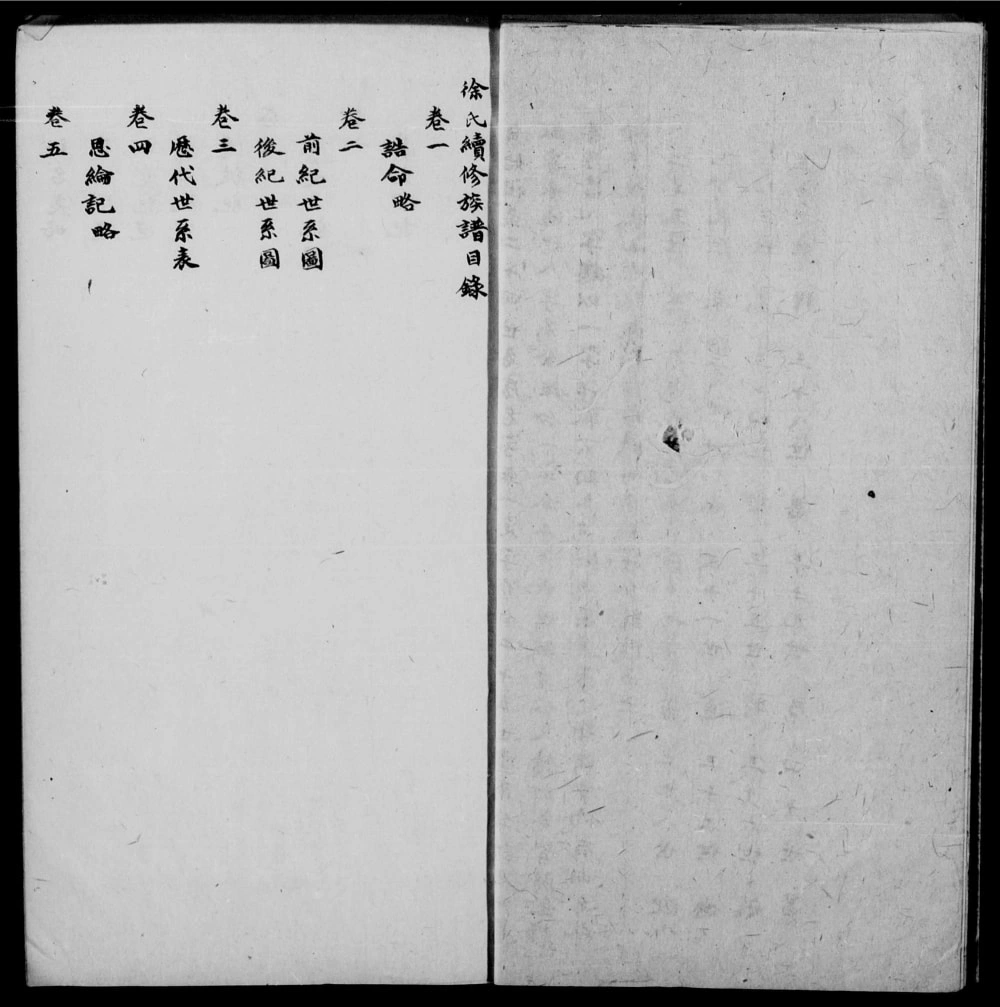 徐氏續修族譜目錄
卷一
誥命略
卷二
前紀世系圖
後紀世系圖
卷三
歷代世系表
卷四
恩綸記略
卷五